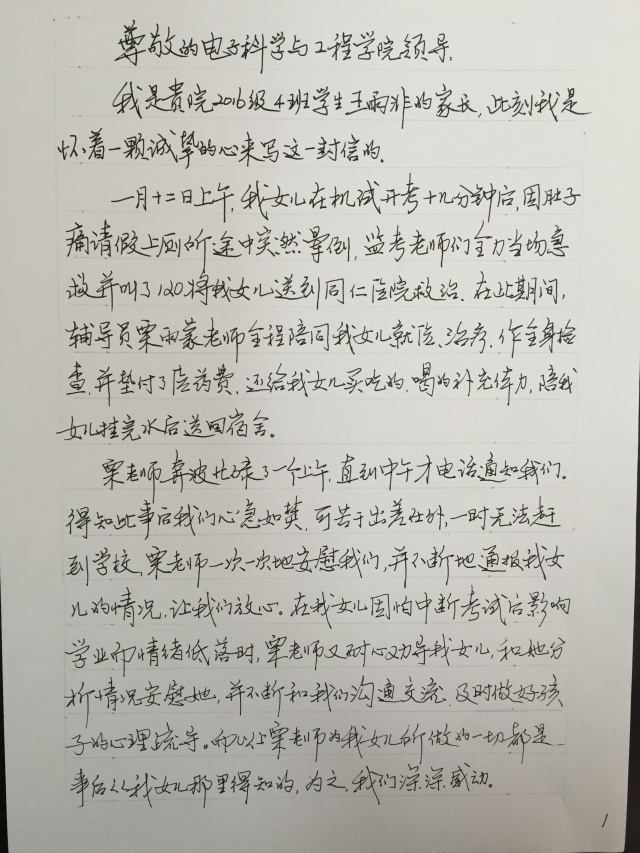 尊敬的电子科学与工程学院领导,
我是贵院2016级4班学生王雨非的家长,此刻我是
怀着一颗诚挚的心来写这一封信的.
一月十二日上午,我女儿在机试开考十几分钟后,因肚子
痛请假上厕所途中突然晕倒,监考老师们全力当场急
救并叫了120将我女儿送到同仁医院救治.在此期间,
辅导员栗雨蒙老师全程陪同我女儿就医、治疗,作全身检
查,并垫付了医药费,还给我女儿买吃的、喝的补充体力,陪我
女儿挂完水后送回宿舍。
栗老师奔波忙碌了一个上午,直到中午才电话通知我们.
得知此事后我们心急如焚,可苦于出差在外,一时无法赶
到学校,栗老师一次一次地安慰我们,并不断地通报我女
儿的情况,让我们放心。在我女儿因怕中断考试后影响
学业而情绪低落时,栗老师又耐心劝导我女儿,和她分
析情况安慰她,并不断和我们沟通交流,及时做好孩
子的心理疏导。而以上栗老师为我女儿所做的一切都是
事后从我女儿那里得知的,为之,我们深深感动。
1